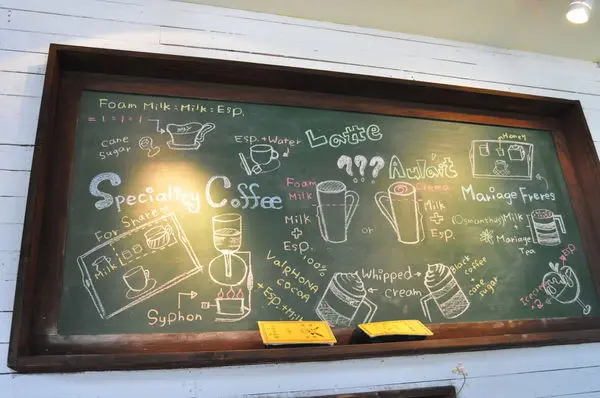 Foam Milk : Milk : Esp.
= 1 : 1 : 1
cane
sugar
Esp. + Water
Latte
???
Aulait
Honey
Mariage Freres
Specialty Coffee
Foam
Milk
Milk
+
Esp.
or
Crema
Milk
+
Esp.
(Osmanthus) Milk
+
Mariage
Tea
For Share
Milk
Syphon
100%
ValRHONA
COCOA
+ Esp. + Milk
Whipped
cream
Black
coffee
+
cane
sugar
Icecream
x2